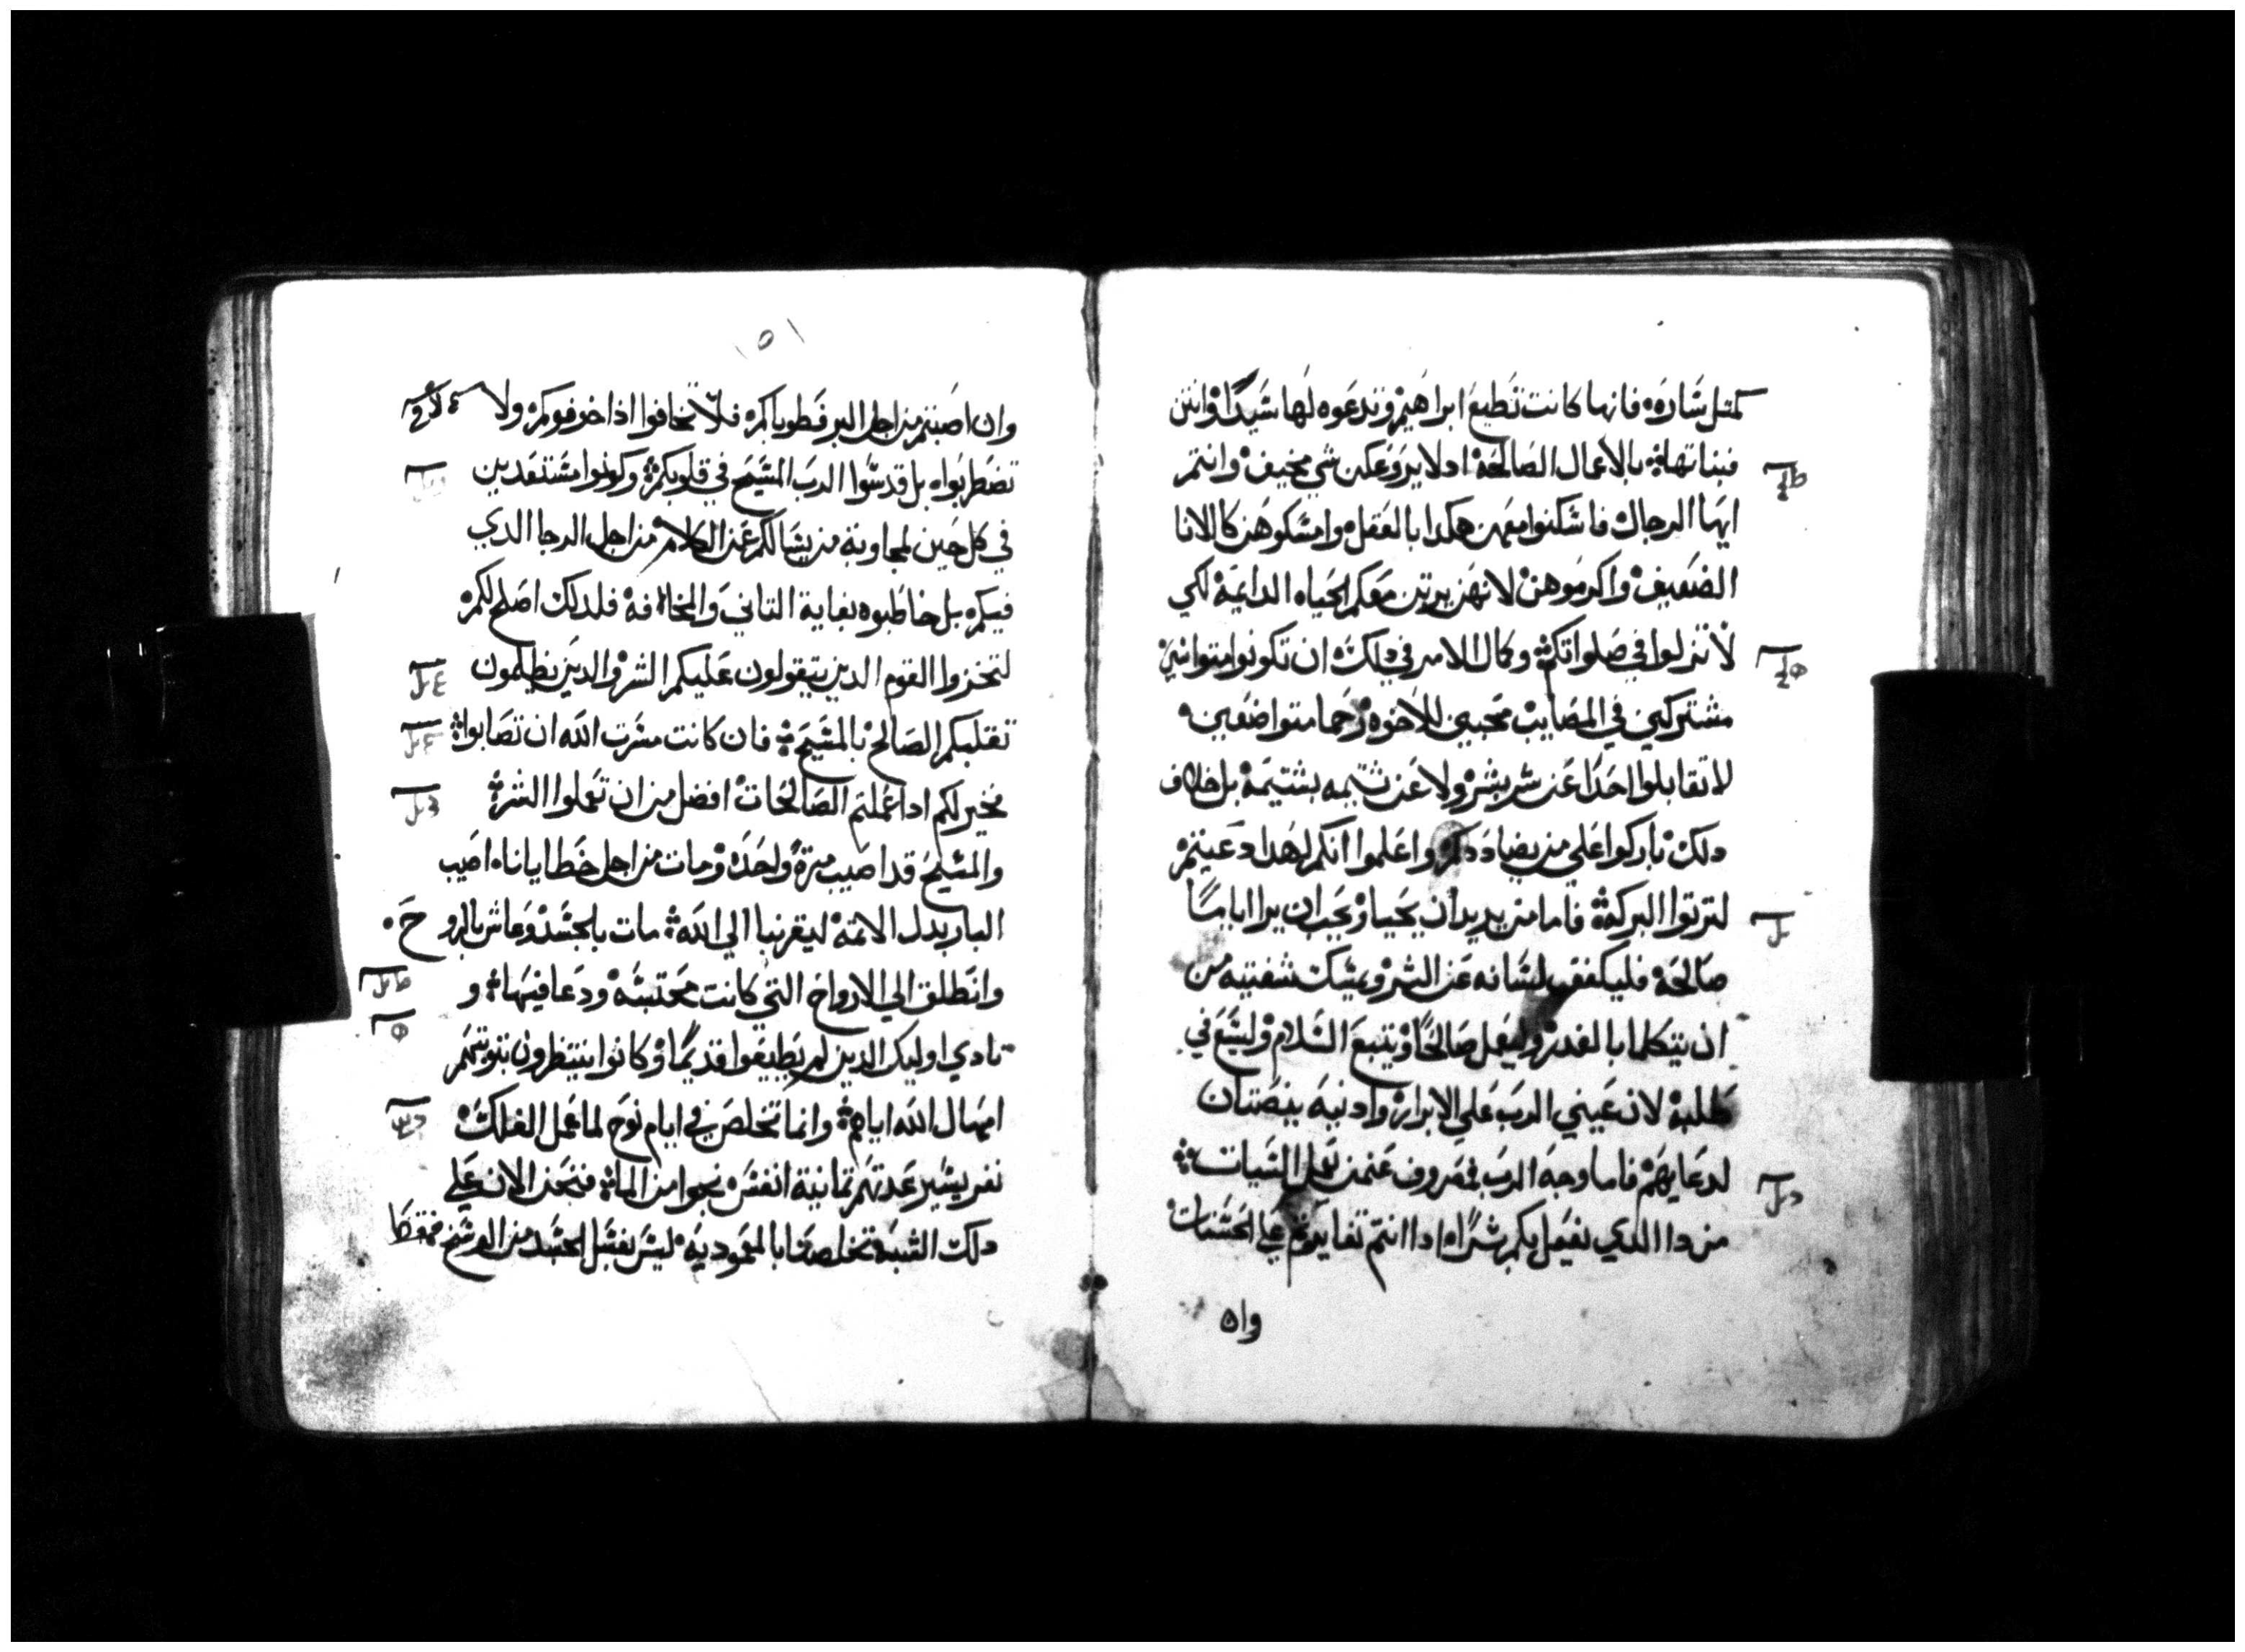 كمتل ساره فانها كانت تطيع ابراهيم وتدعوه لها سيدا وانتن
فبناتها بالاعمال الصالحة اد لا يروعكن شي مخيف وانتم
ايها الرجال فاسكنوا معهن هكدا بالعقل وامسكوهن كالانا
الضعيف واكرموهن لانهن يرتن معكم الحياه الدايمة لكي
لا تنزلوا في صلواتكم وكمال الامر في دلك ان تكونوا متواسين
مشتركين في المصايب محبين للاخوه رحما متواضعين
لا تقابلوا احدا عن شر بشر ولا عن شتيمه بشتيمة بل خلاف
دلك باركوا علي من يضاددكم واعلموا انكم لهدا دعيتم
لترتوا البركة فاما من يريد ان يحيا ويحب ان يرا اياما
صالحة فليكفف لسانه عن الشر ويمسك شفتيه من
ان يتكلما بالغدر وليعمل صالحا ويتبع السلام وليسع في
طلبة لان عيني الرب علي الابرار وادنيه ينصتان
لدعايهم فاما وجه الرب فمصروف عنمن يعمل السيات
من دا الدي يفعل بكم شرا ادا انتم تغايرتم علي الحسنات
وان
١٥١
وان اصبتم من اجل البر فطوباكم فلا تخافوا اذا خوفوكم ولا
تضطربوا بل قدسوا الرب المسيح في قلوبكم وكونوا مستعدين
في كل حين لمجاوبة من يسالكم عن الكلام من اجل الرجا الدي
فيكم بل خاطبوه بغاية التاني والمخافة فلدلك اصلح لكم
لتخزوا القوم الدين يتقولون عليكم الشر والدين يظلمون
تقلبكم الصالح بالمسيح فان كانت مسرت الله ان تصابوا
فخير لكم ادا عملتم الصالحات افضل من ان تعملوا الشر
والمسيح قد اصيب مرة واحدة ومات من اجل خطايانا اصيب
البار بدل الاتمة ليقربنا الي الله مات بالجسد وعاش بالروح
وانطلق الي الارواح التي كانت محتبسه ودعا فيها و
نادي اوليك الدين لم يطيعوا قديما وكانوا ينتظرون بتوبتهم
امهال الله اياهم وانما تخلص في ايام نوح لما عمل الفلك
نفر يسير عدتهم تمانية انفس نجوا من الما فنحن الان علي
دلك الشبه تخلصنا بالمعموديه ليس بغسل الجسد من الوسخ فقط